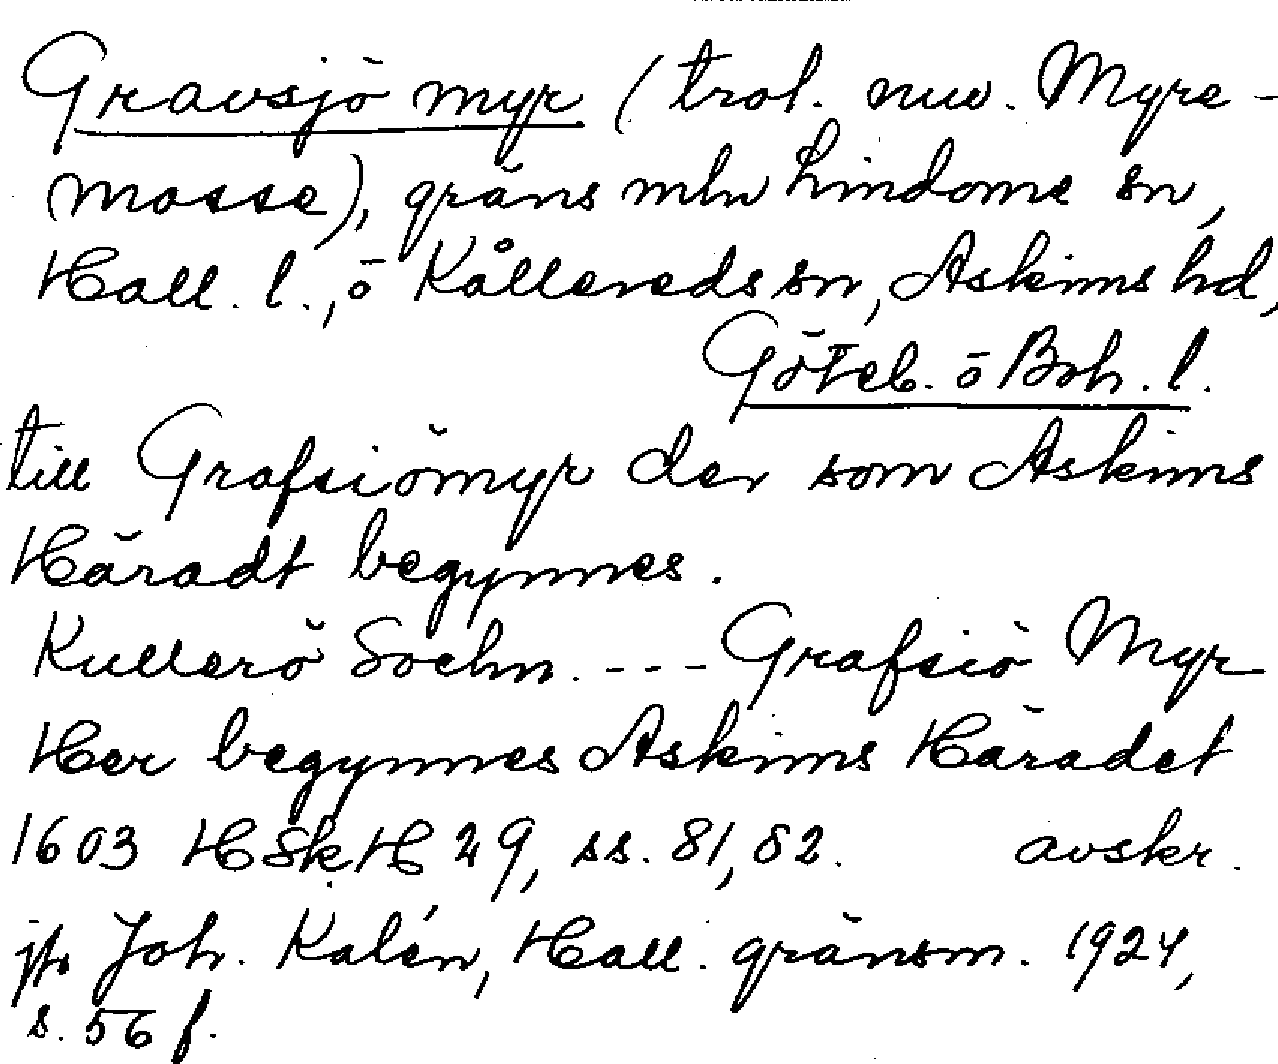 Gravsjö myr (trol. nuv. Myre-
mosse), gräns mln Lindome sn,
Hall. l., ö Kållereds sn, Askims hd,
Göteb. ö Boh. l.
till Grafsiömyr der som Askims
Häradt begynnes.
Kullerö Sochn. --- Grafsiö Myr
Her begynnes Askims Häradet
1603 HSkH 29, ss. 81, 82. avskr.
jfr Joh. Kalén, Hall. gränsm. 1924,
s. 56 f.